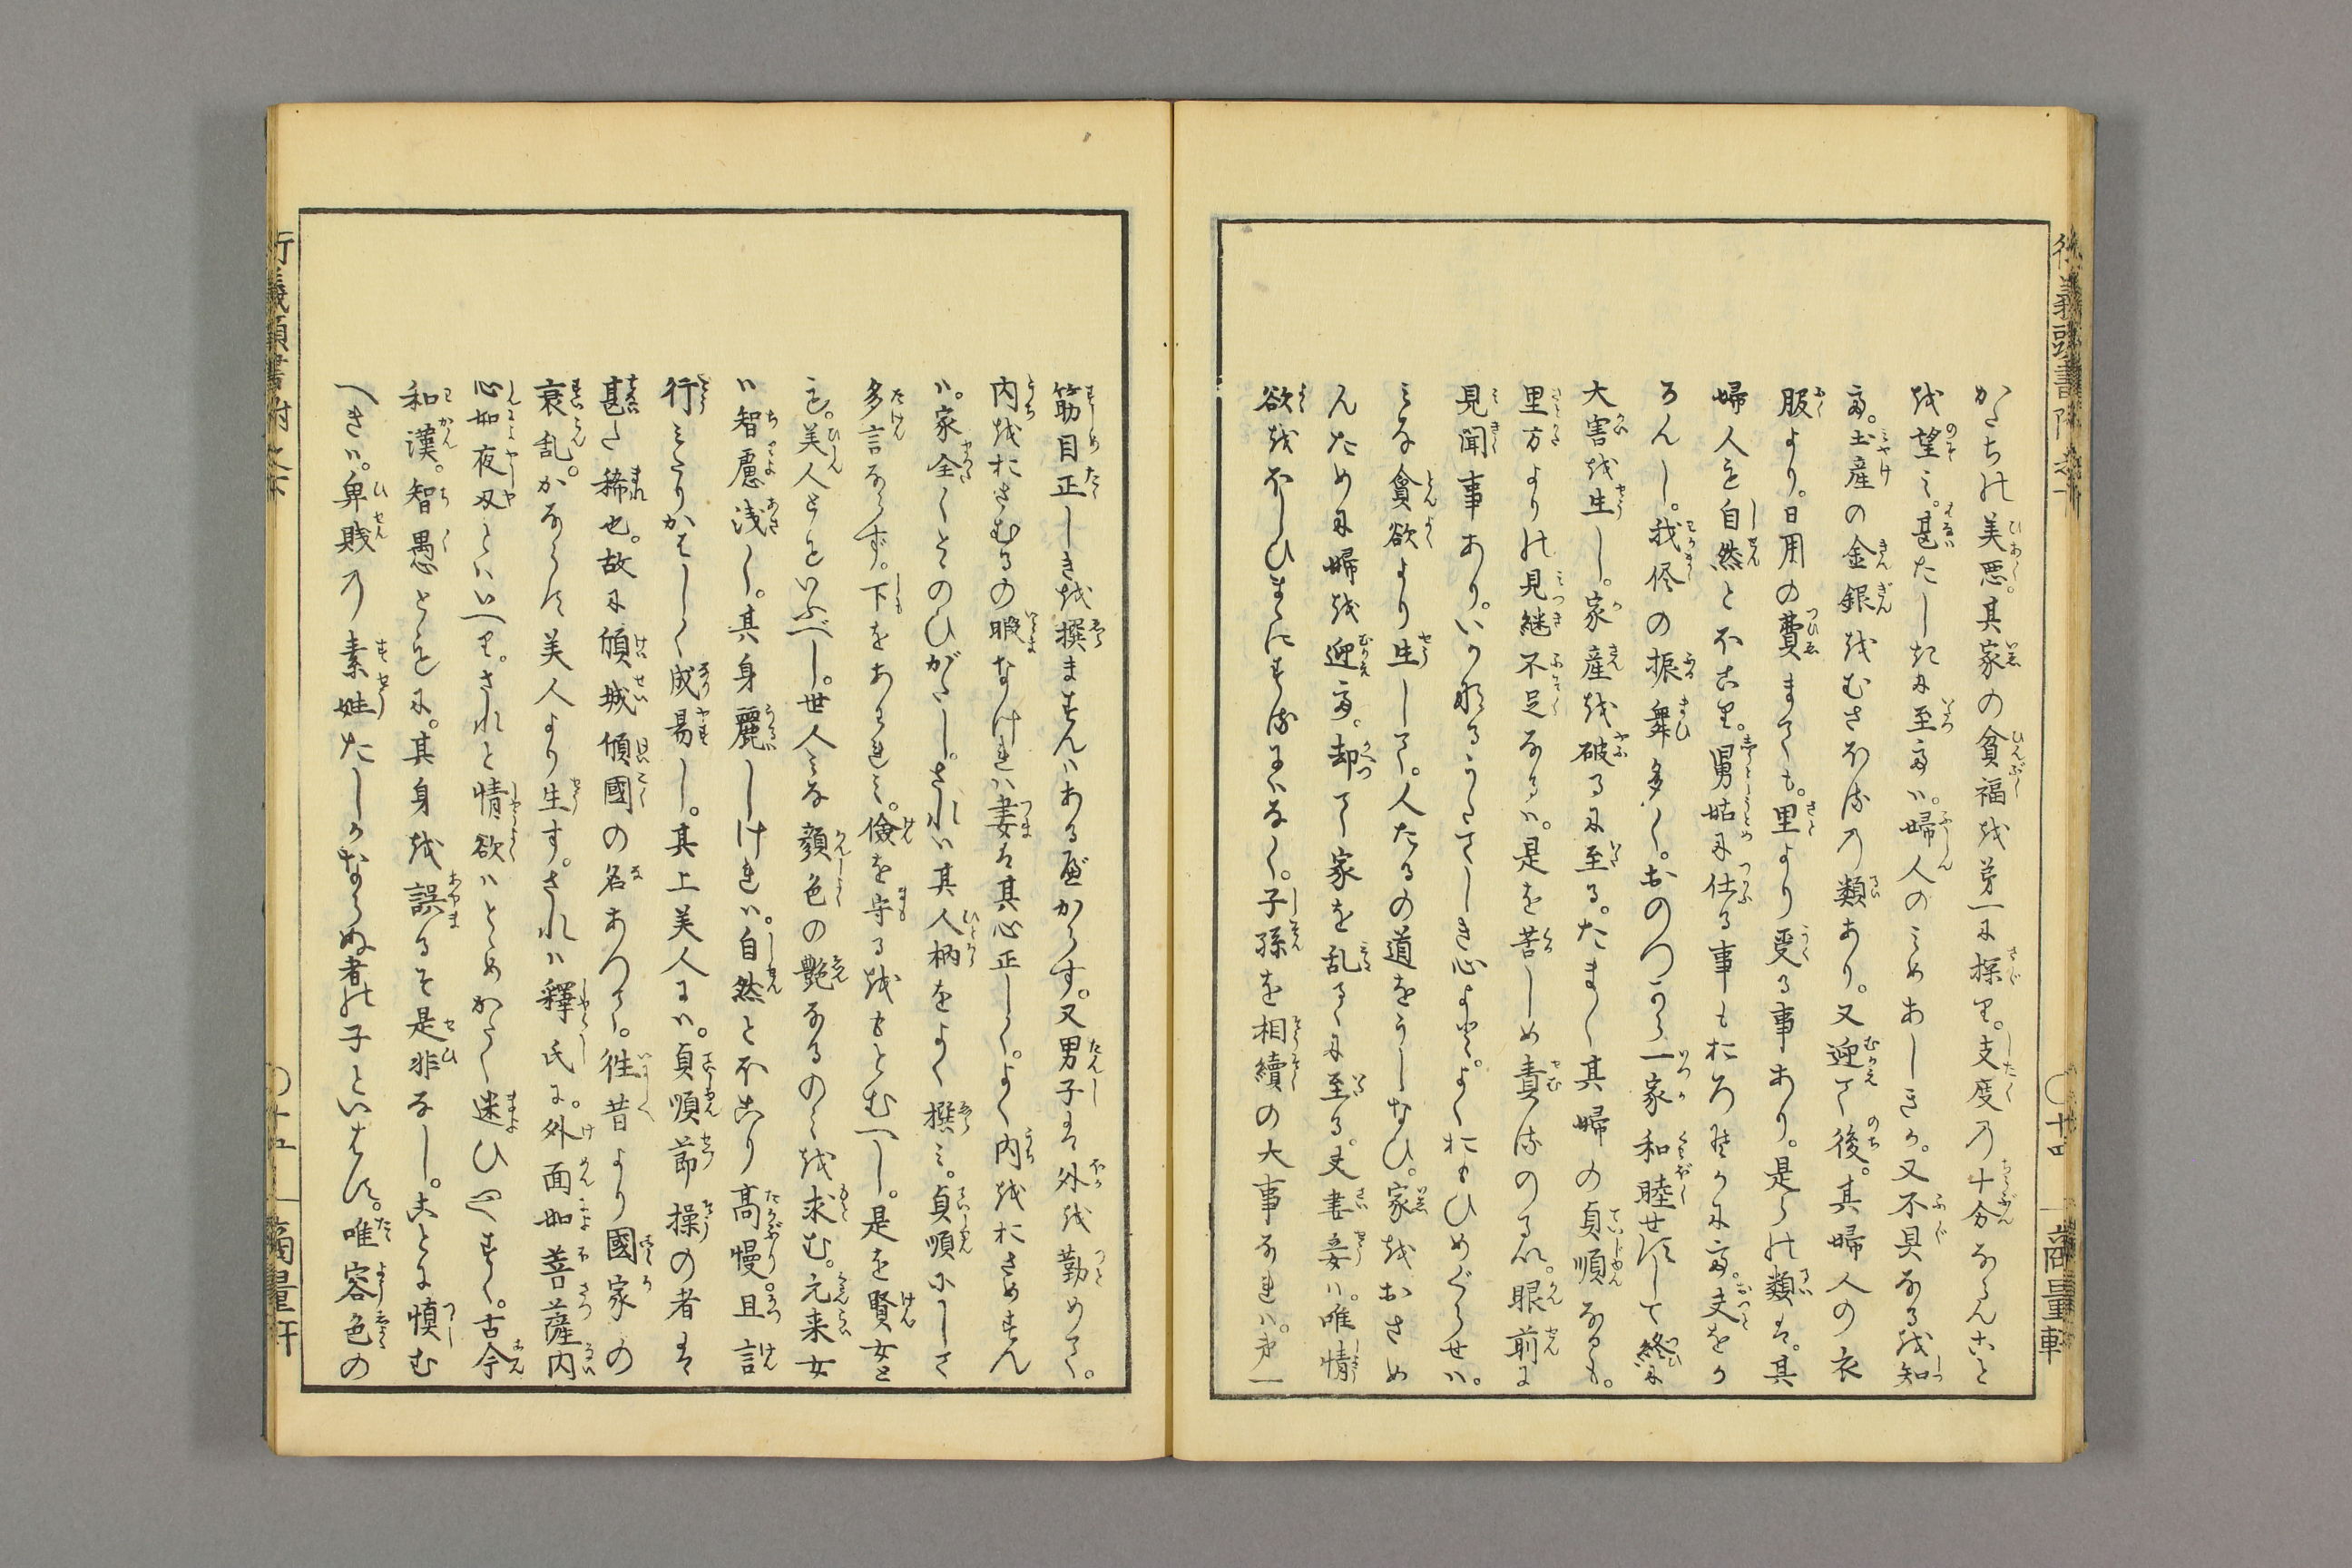 かたちの美悪。其家の貧福を第一に探り。支度の十分ならんこと
を望み。甚たしきに至ては。婦人のみめあしきか。又不具なるを知
て。土産の金銀をむさぼるの類あり。又迎て後。其婦人の衣
服より。日用の費まても。里より受る事あり。是らの類は。其
婦人も自然とほこり。舅姑に仕る事もおろそかにて。夫をか
ろんし。我侭の振舞多く。おのつから一家和睦せずして終に
大害を生し。家産を破るに至る。たま〱其婦の貞順なるも。
里方よりの見継不足なるは。是を苦しめ責るのるい。眼前に
見聞事あり。いかなるうたてしき心よりぞ。よくおもひめぐらせは。
みな貪欲より生して。人たるの道をうしなひ。家をおさめ
んために婦を迎て。却て家を乱るに至る。夫妻妾は。唯情
欲をほしひまゝにするにはなく。子孫を相續の大事なれは。第一
筋目正しきを撰ますんはあるべからす。又男子は外を勤めて。
内をおさむるの暇なけれは妻は其心正しく。よく内をおさめすん
は。家全くとゝのひがたし。されは其人柄をよく撰み。貞順にして
多言ならず。下をあはれみ。儉を守るをもとむへし。是を賢女と
も。美人ともいふべし。世人みな顔色の艶なるのみを求む。元来女
は智慮浅く。其身麗しけれは。自然とほこり高慢。且言
行みたりかはしく成易し。其上美人には。貞順節操の者は
甚た稀也。故に傾城傾國の名あつて。徃昔より國家の
衰乱。かならす美人より生す。されは釋氏に。外面如菩薩内
心如夜叉とはいへり。されと情欲はとゝめかたく迷ひやすく。古今
和漢。智愚ともに。其身を誤るも是非なし。ことに慎む
へきは。卑賤の素姓たしかならぬ者の子といはす。唯容色の
商量軒